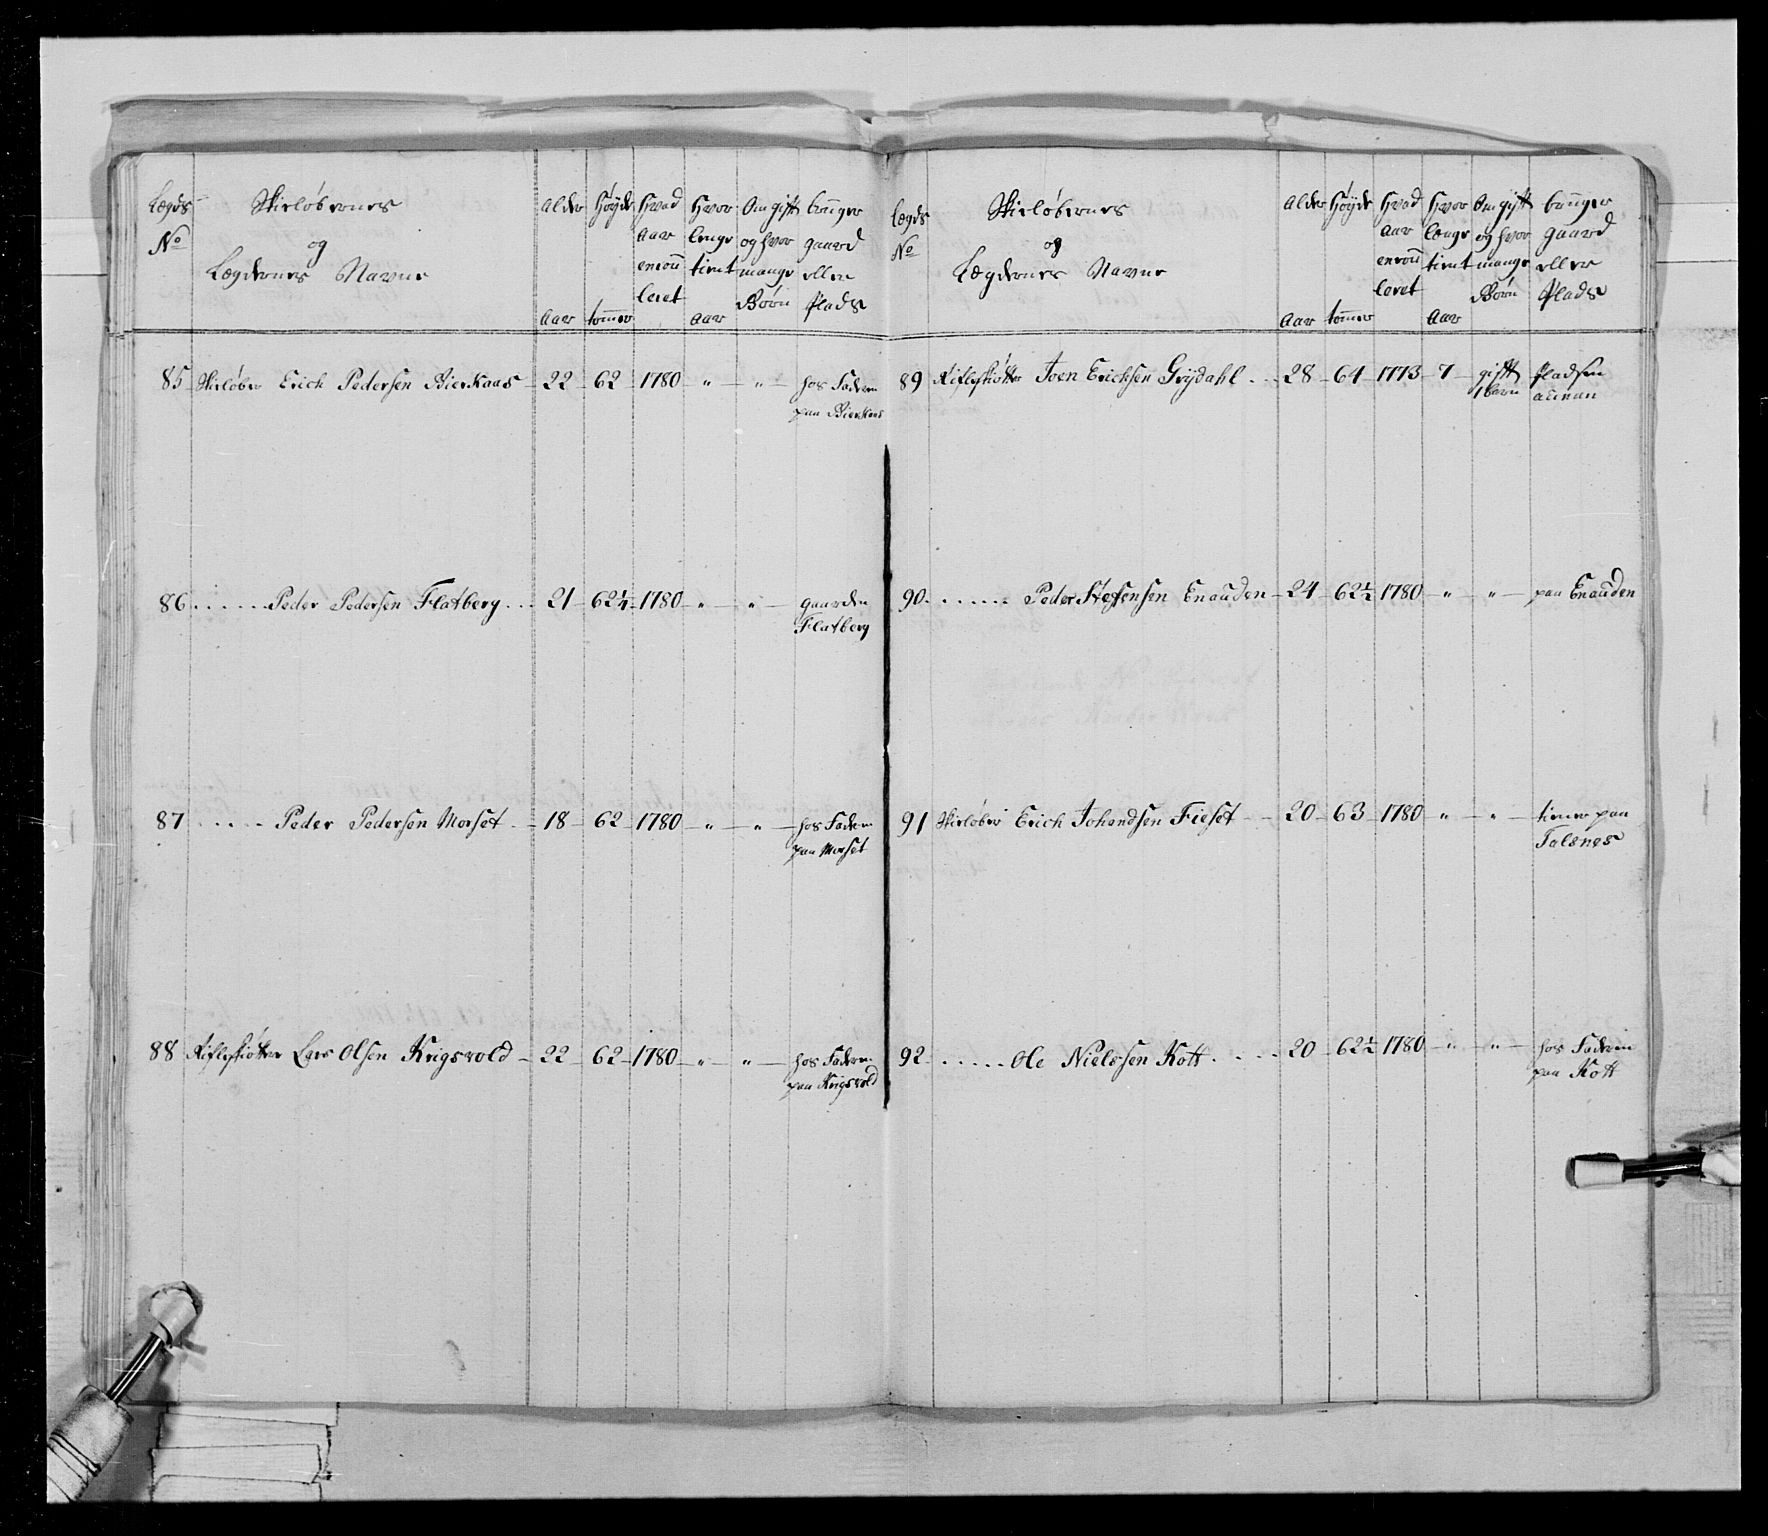 Lægds No | Skieløbernes og Lægdernes Navne | Alder Aar | Høyde tommer | Hvad Aar enroulleret | Hvor lenge tient Aar | Om gift og hvor mange Børn | bruger gaard eller Plads
85 Skieløber Erich Pedersen Bierkaas - 22 - 62 - 1780 - " - " - hos Faderen
paa Bierkaas
86 ..... Peder Pedersen Flatberg ... 21 - 62¼ - 1780 - " - " - gaarden
Flatberg
87 .... Peder Pedersen Morset - 18 - 62 - 1780 - " - " - hos Faderen
paa Morset
88 Riflskiøtter Lars Olsen Krigsvold - 22 - 62 - 1780 - " - " - hos Faderen
paa Krigsvold
Lægds No | Skieløbernes og Lægdernes Navne | Alder Aar | Høyde tommer | Hvad Aar enroulleret | Hvor længe tient Aar | Om gift og hvor mange Børn | bruger gaard eller Plads
89 Riflskiøtter Joen Erichsen Grydahl - 28 - 64 - 1773 - 7 - gift Pladsen
1 barn Aunan
90 ...... Peder Steffensen Enauden - 24 - 62½ - 1780 - " - " - paa Enauden
91 Skieløber Erich Johandsen Fieset - 20 - 63 - 1780 - " - " - tiener paa
Talsnes
92 ..... Ole Nielssen Kott .... 20 - 62¼ - 1780 - " - " - hos Faderen
paa Kott